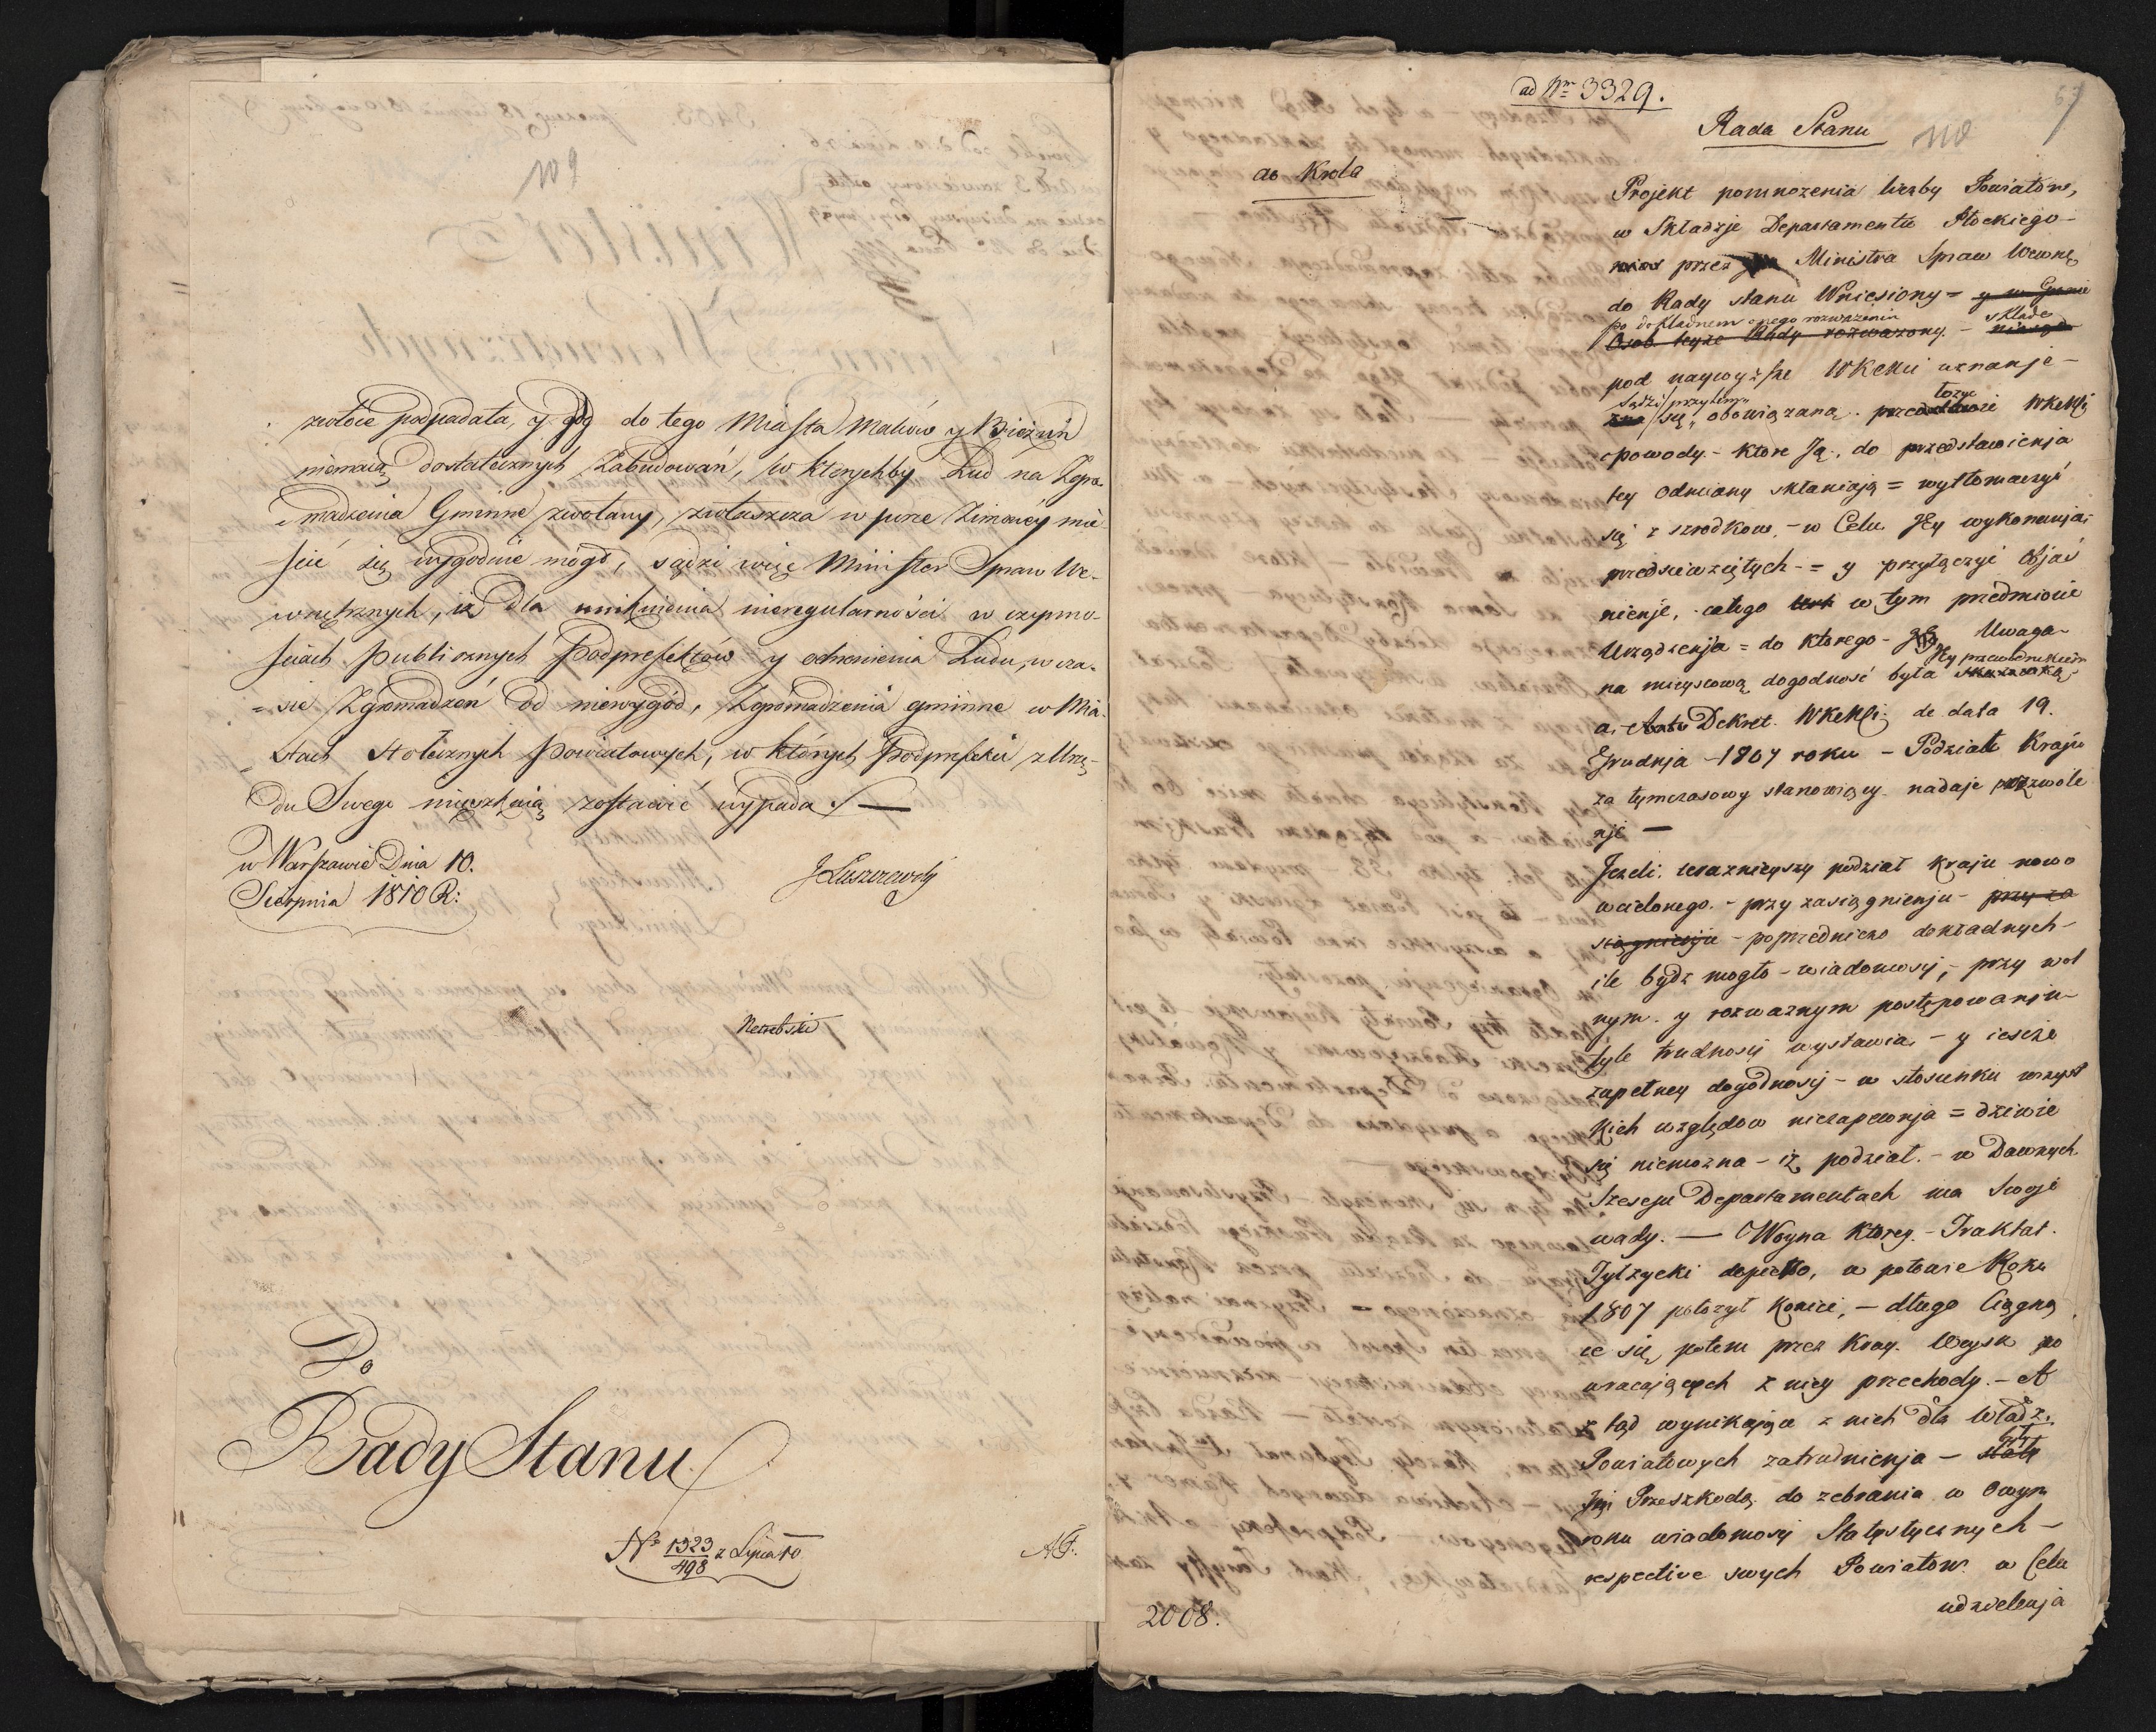 109
zwłoce podpadała, y gdy do tego Miasta Maków y Bieżuń
niemaią dostatecznych Zabudowań, w którychby Lud na Zgro-
madzenia Gminne zwołany, zwłaszcza w porze Zimowey mie-
ścić się wygodnie mógł, sądzi więc Minister Spraw We-
wnętrznych, iż dla uniknienia nieregularności w czynno-
ściach Publicznych Podprefektów y ochronienia Ludu, w cza-
sie Zgromadzeń od niewygód, Zgromadzenia gminne w Mia-
stach Stołecznych Powiatowych, w których Podprefekci z Urzę-
du Swego mieszkaią zostawić wypada. —
w Warszawie Dnia 10.
Sierpnia 1810 R:
JŁuszczewski
Do
Rady Stanu
No 1323/498 z Lipca 10
ad Nr 3329.
Rada Stanu
110
do Krola
Projekt pomnozenia liczby Powiatów,
w Składzie Departamentu Płockiego
przez Ministra Spraw Wewnę
do Rady stanu Wniesiony =
po dokładnem onego rozwazeniu składa
Osob teyże Rady rozwazony. -
pod naywyższe WKMci uznanie -
Sądzi przytym
się obowiązaną. przedłożyć WKMci
powody - ktore Ją, do przedstawienia
tey odmiany skłaniają = wytłomaczyć
się z srodkow, - w Celu Jey wykonania
przedsiewziętych - = y przyłączyć Objaś
nienie, całego w tym przedmiocie
Urządzenia = do ktorego - Uwaga
na mieyscową dogodność była Jey przewodnikiem
a. Dekret WKMci de data 19.
Grudnia 1807 roku - Podział Kraju
za tymczasowy stanowiący nadaje pozwole
nie —
Jezeli terazniejszy podział kraju nowo
wcielonego. - przy zasiągnieniu - przy za
siągnieniu - poprzedniczo dokładnych -
ile bydz mogło - wiadomosci, - przy wol
nym y rozwaznym postępowaniu -
tyle trudnosci wystawia - y ieszcze
zupełney dogodnosci - w stosunku wszyst
kich względow niezapewnia = dziwic
się niemozna - iż podział. - w Dawnych
Szesciu Departamentach ma swoje
wady. — Woyna ktorey - Traktat
Tylzycki dopiero, w połowie Roku
1807 położył koniec, - długo Ciągną
ce się potem przez kray Woysk po
wracających z niey przechody. - A
z tąd wynikające z nich dla Władz
Powiatowych zatrudnienia - stały
Przeszkodą do zebrania w owym
roku wiadomosci Statystycznych -
respective swych Powiatow w Celu
udzielenia
2008.